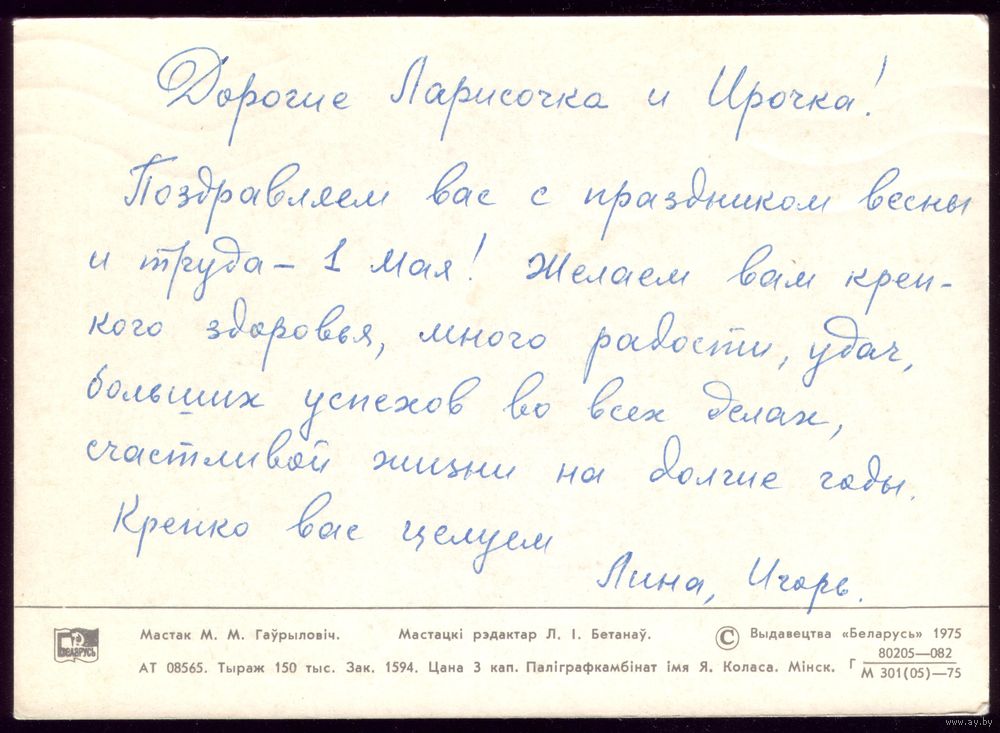 Дорогие Ларисочка и Ирочка!
Поздравляем вас с праздником весны
и труда – 1 Мая! Желаем вам креп-
кого здоровья, много радости, удач,
больших успехов во всех делах,
счастливой жизни на долгие годы.
Крепко вас целуем
Лина, Игорь.
БЕЛАРУСЬ
Мастак М. М. Гаўрыловіч. Мастацкі рэдактар Л. І. Бетанаў. © Выдавецтва «Беларусь» 1975
АТ 08565. Тыраж 150 тыс. Зак. 1594. Цана 3 кап. Паліграфкамбінат імя Я. Коласа. Мінск. Г 80205—082
М 301(05)—75
www.ay.by